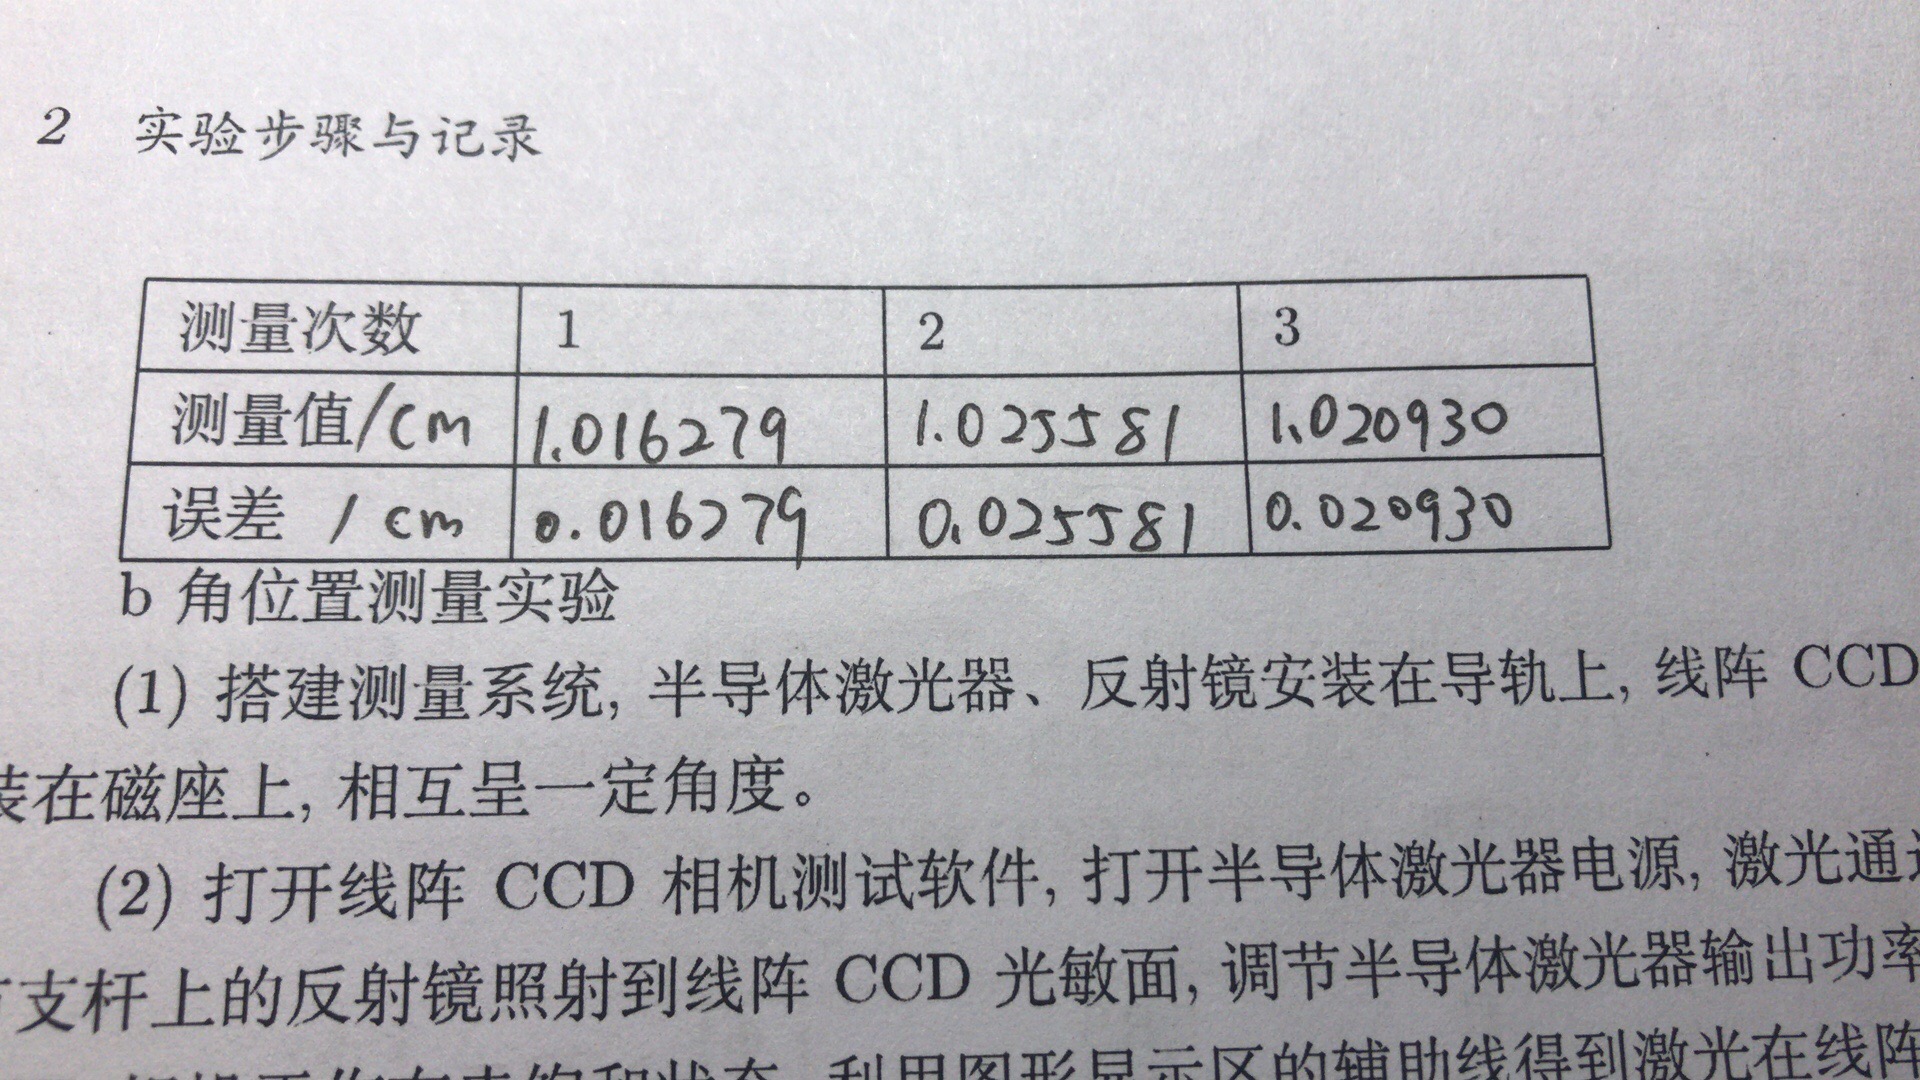 2 实验步骤与记录
测量次数 1 2 3
测量值/cm 1.016279 1.025581 1.020930
误差 / cm 0.016279 0.025581 0.020930
b 角位置测量实验
(1) 搭建测量系统, 半导体激光器、反射镜安装在导轨上, 线阵 CCD
装在磁座上, 相互呈一定角度。
(2) 打开线阵 CCD 相机测试软件, 打开半导体激光器电源, 激光通过
支杆上的反射镜照射到线阵 CCD 光敏面, 调节半导体激光器输出功率
利用图形显示区的辅助线得到激光在线阵